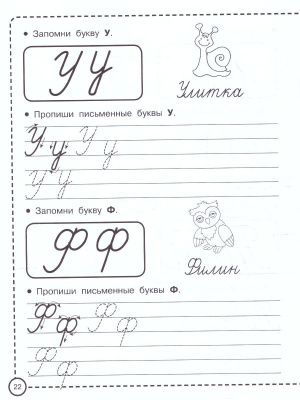 Запомни букву У.
У у
Улитка
Пропиши письменные буквы У.
У у У у
У у
Запомни букву Ф.
Ф ф
Филин
Пропиши письменные буквы Ф.
Ф ф Ф ф
Ф ф
22